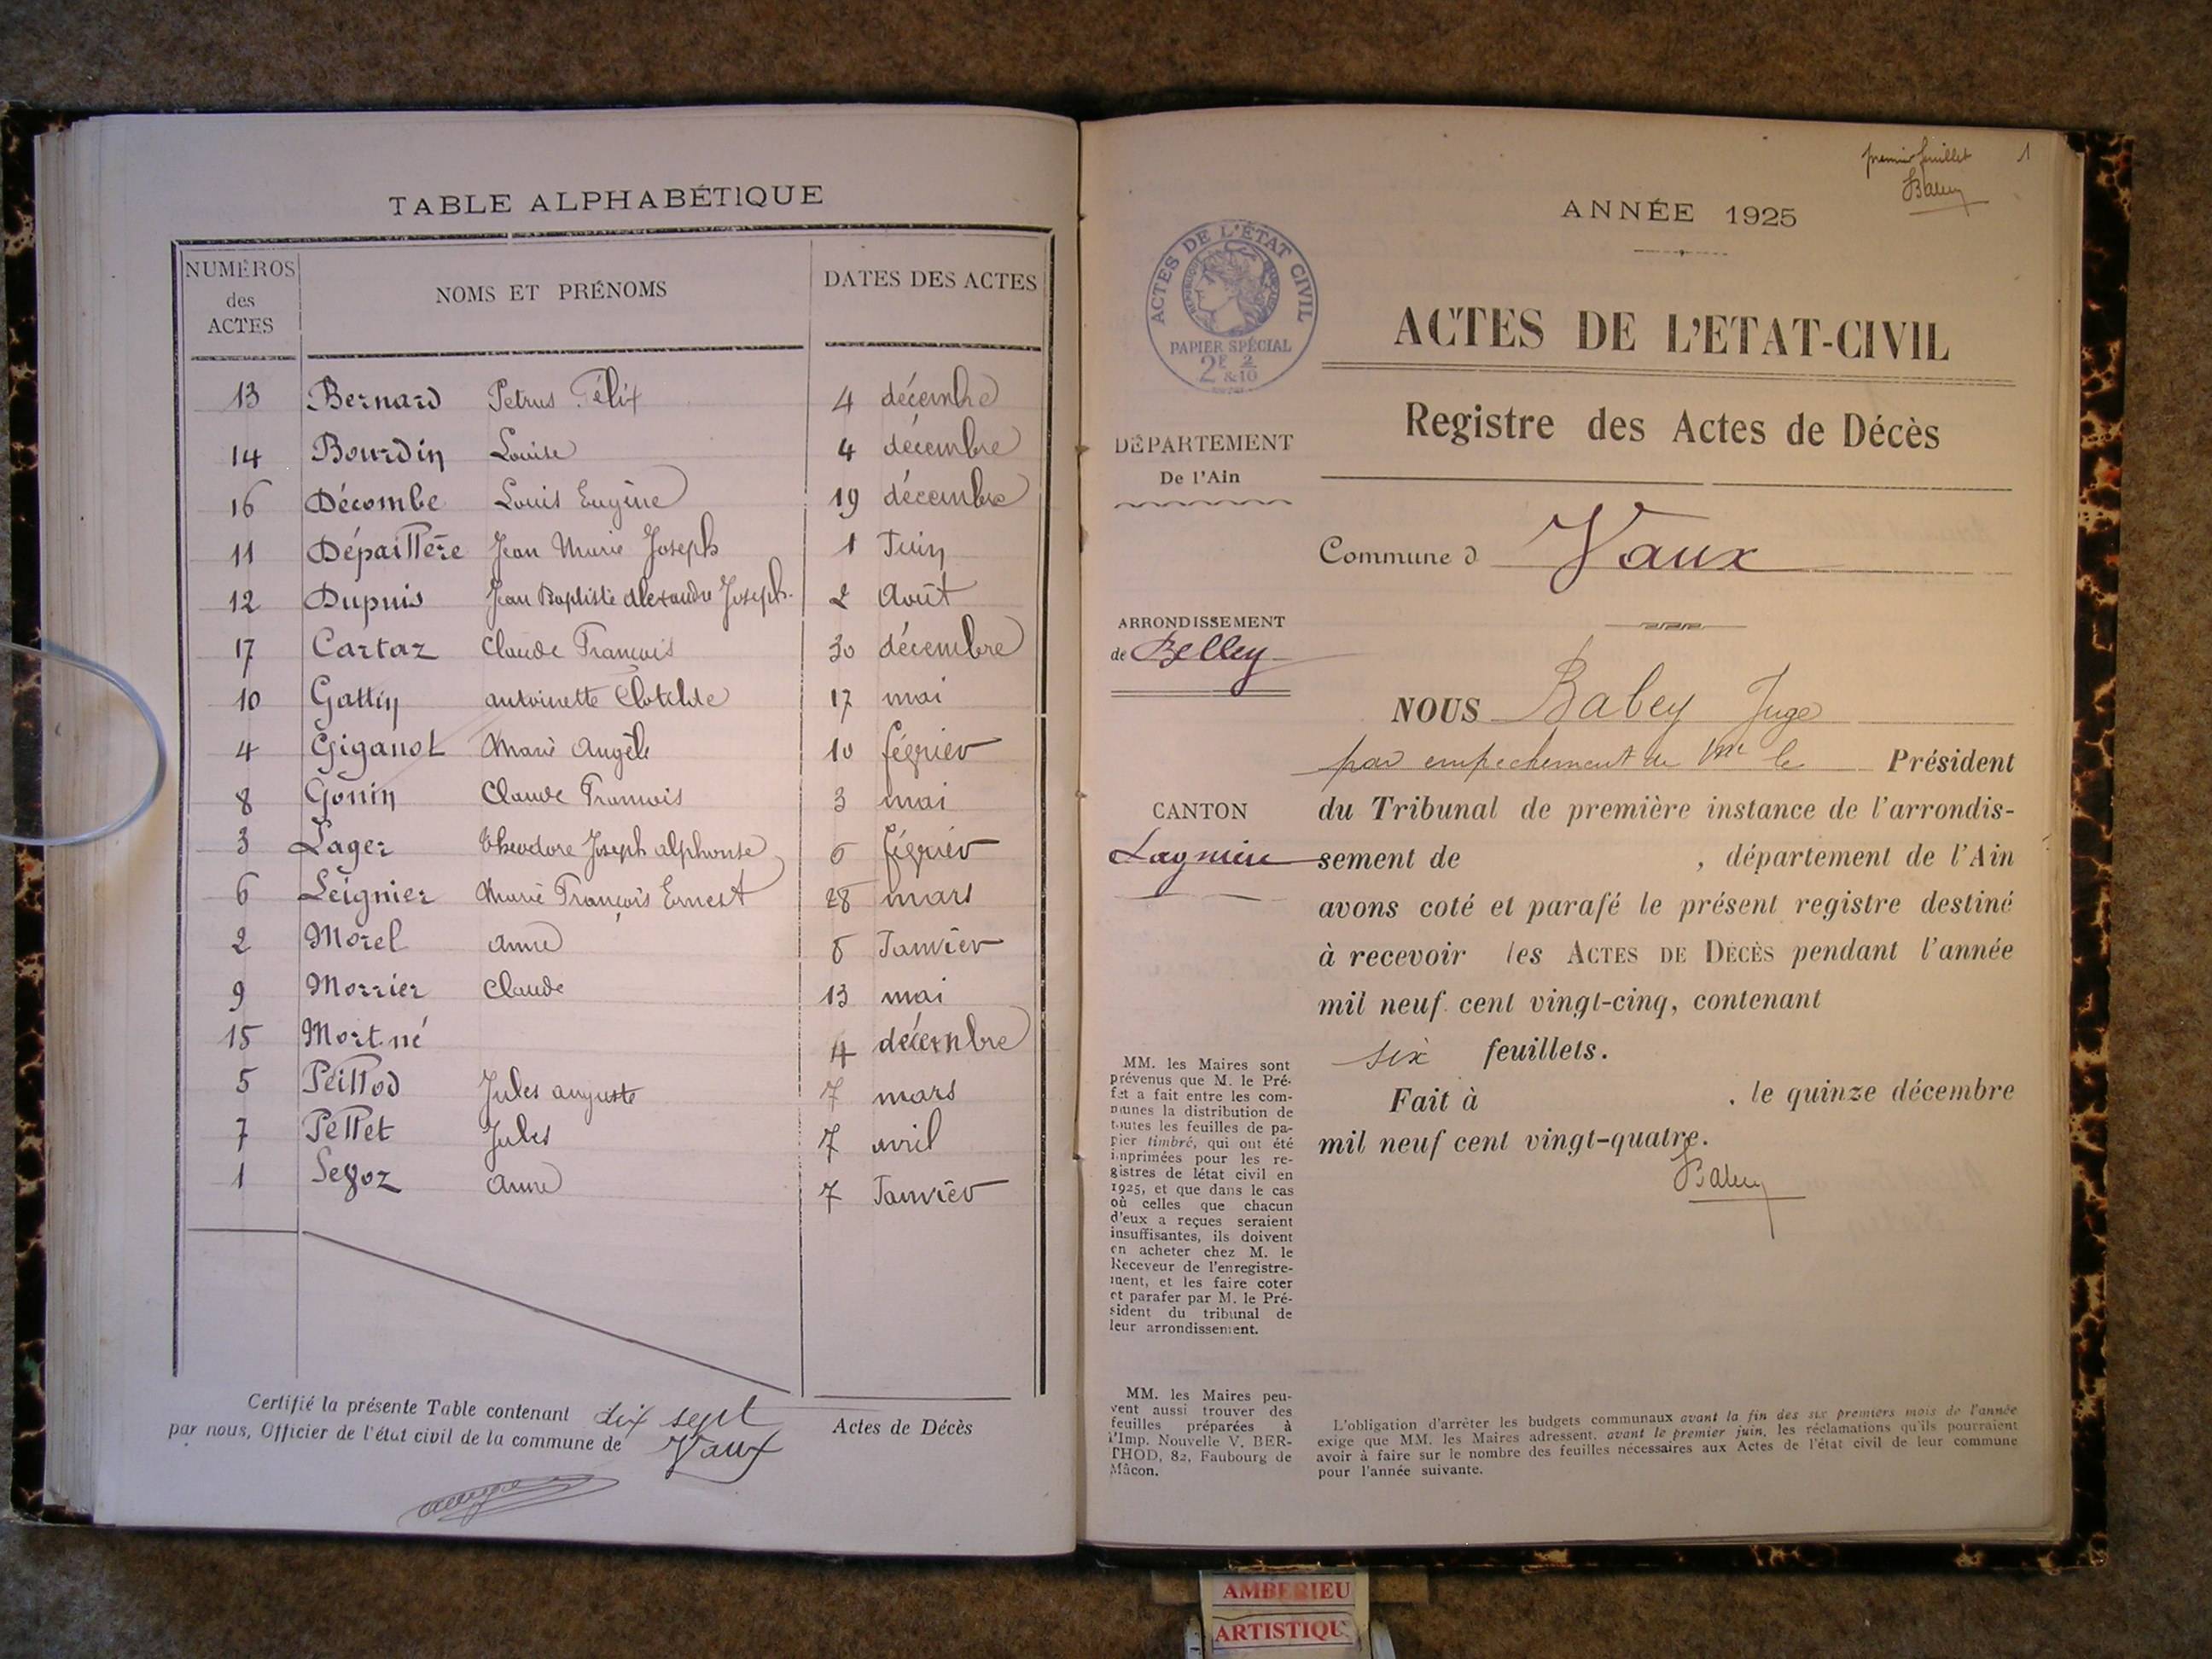 TABLE ALPHABÉTIQUE
NUMÉROS des ACTES NOMS ET PRÉNOMS DATES DES ACTES
13 Bernard Petrus Félix 4 décembre
14 Bourdin Louise 4 décembre
16 Décombe Louis Eugène 19 décembre
11 Dépaillère Jean Marie Joseph 1 Juin
12 Dupuis Jean Baptiste Alexandre Joseph 2 Août
17 Cartaz Claude François 30 décembre
10 Gattin antoinette Clotilde 17 mai
4 Giganot Marie Angèle 10 février
8 Gonin Claude François 3 mai
3 Lager Théodore Joseph alphonse 6 février
6 Leignier Marie François Ernest 28 mars
2 Morel anne 8 Janvier
9 Morrier Claude 13 mai
15 Mort né 4 décembre
5 Peillod Jules auguste 7 mars
7 Pellet Jules 7 avril
1 Anne 7 Janvier
Certifié la présente Table contenant dix sept Actes de Décès
par nous, Officier de l'état civil de la commune de Vaux
premier feuillet 1
Babey
ANNÉE 1925
ACTES DE L'ÉTAT CIVIL
RÉPUBLIQUE FRANÇAISE
PAPIER SPÉCIAL
2F & 2/10
ACTES DE L'ETAT-CIVIL
Registre des Actes de Décès
DÉPARTEMENT
De l'Ain
Commune d Vaux
ARRONDISSEMENT
de Belley
NOUS Babey Juge
par empechement de Mr le Président
CANTON
Lagnieu
du Tribunal de première instance de l'arrondis-
sement de , département de l'Ain
avons coté et parafé le présent registre destiné
à recevoir les ACTES DE DÉCÈS pendant l'année
mil neuf cent vingt-cinq, contenant
six feuillets.
Fait à , le quinze décembre
mil neuf cent vingt-quatre.
Babey
MM. les Maires sont
prévenus que M. le Pré-
fet a fait entre les com-
munes la distribution de
toutes les feuilles de pa-
pier timbré, qui ont été
imprimées pour les re-
gistres de létat civil en
1925, et que dans le cas
où celles que chacun
d'eux a reçues seraient
insuffisantes, ils doivent
en acheter chez M. le
Receveur de l'enregistre-
ment, et les faire coter
et parafer par M. le Pré-
sident du tribunal de
leur arrondissement.
MM. les Maires peu-
vent aussi trouver des
feuilles préparées à
l'Imp. Nouvelle V. BER-
THOD, 82, Faubourg de
Mâcon.
L'obligation d'arrêter les budgets communaux avant la fin des six premiers mois de l'année
exige que MM. les Maires adressent, avant le premier juin, les réclamations qu'ils pourraient
avoir à faire sur le nombre des feuilles nécessaires aux Actes de l'état civil de leur commune
pour l'année suivante.
AMBERIEU
ARTISTIQU